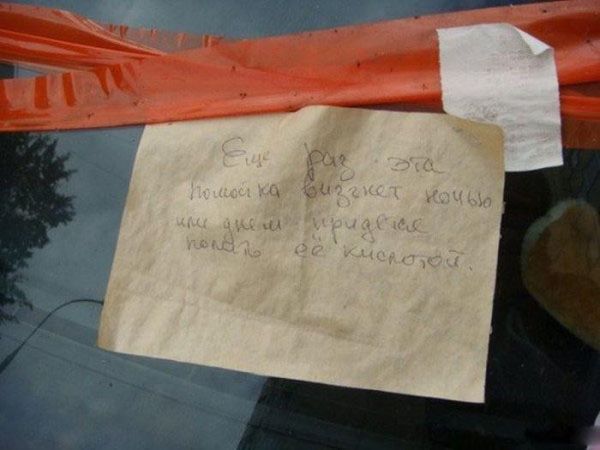 Еще раз эта
помойка визгнет ночью
или днем придется
полить её кислотой.